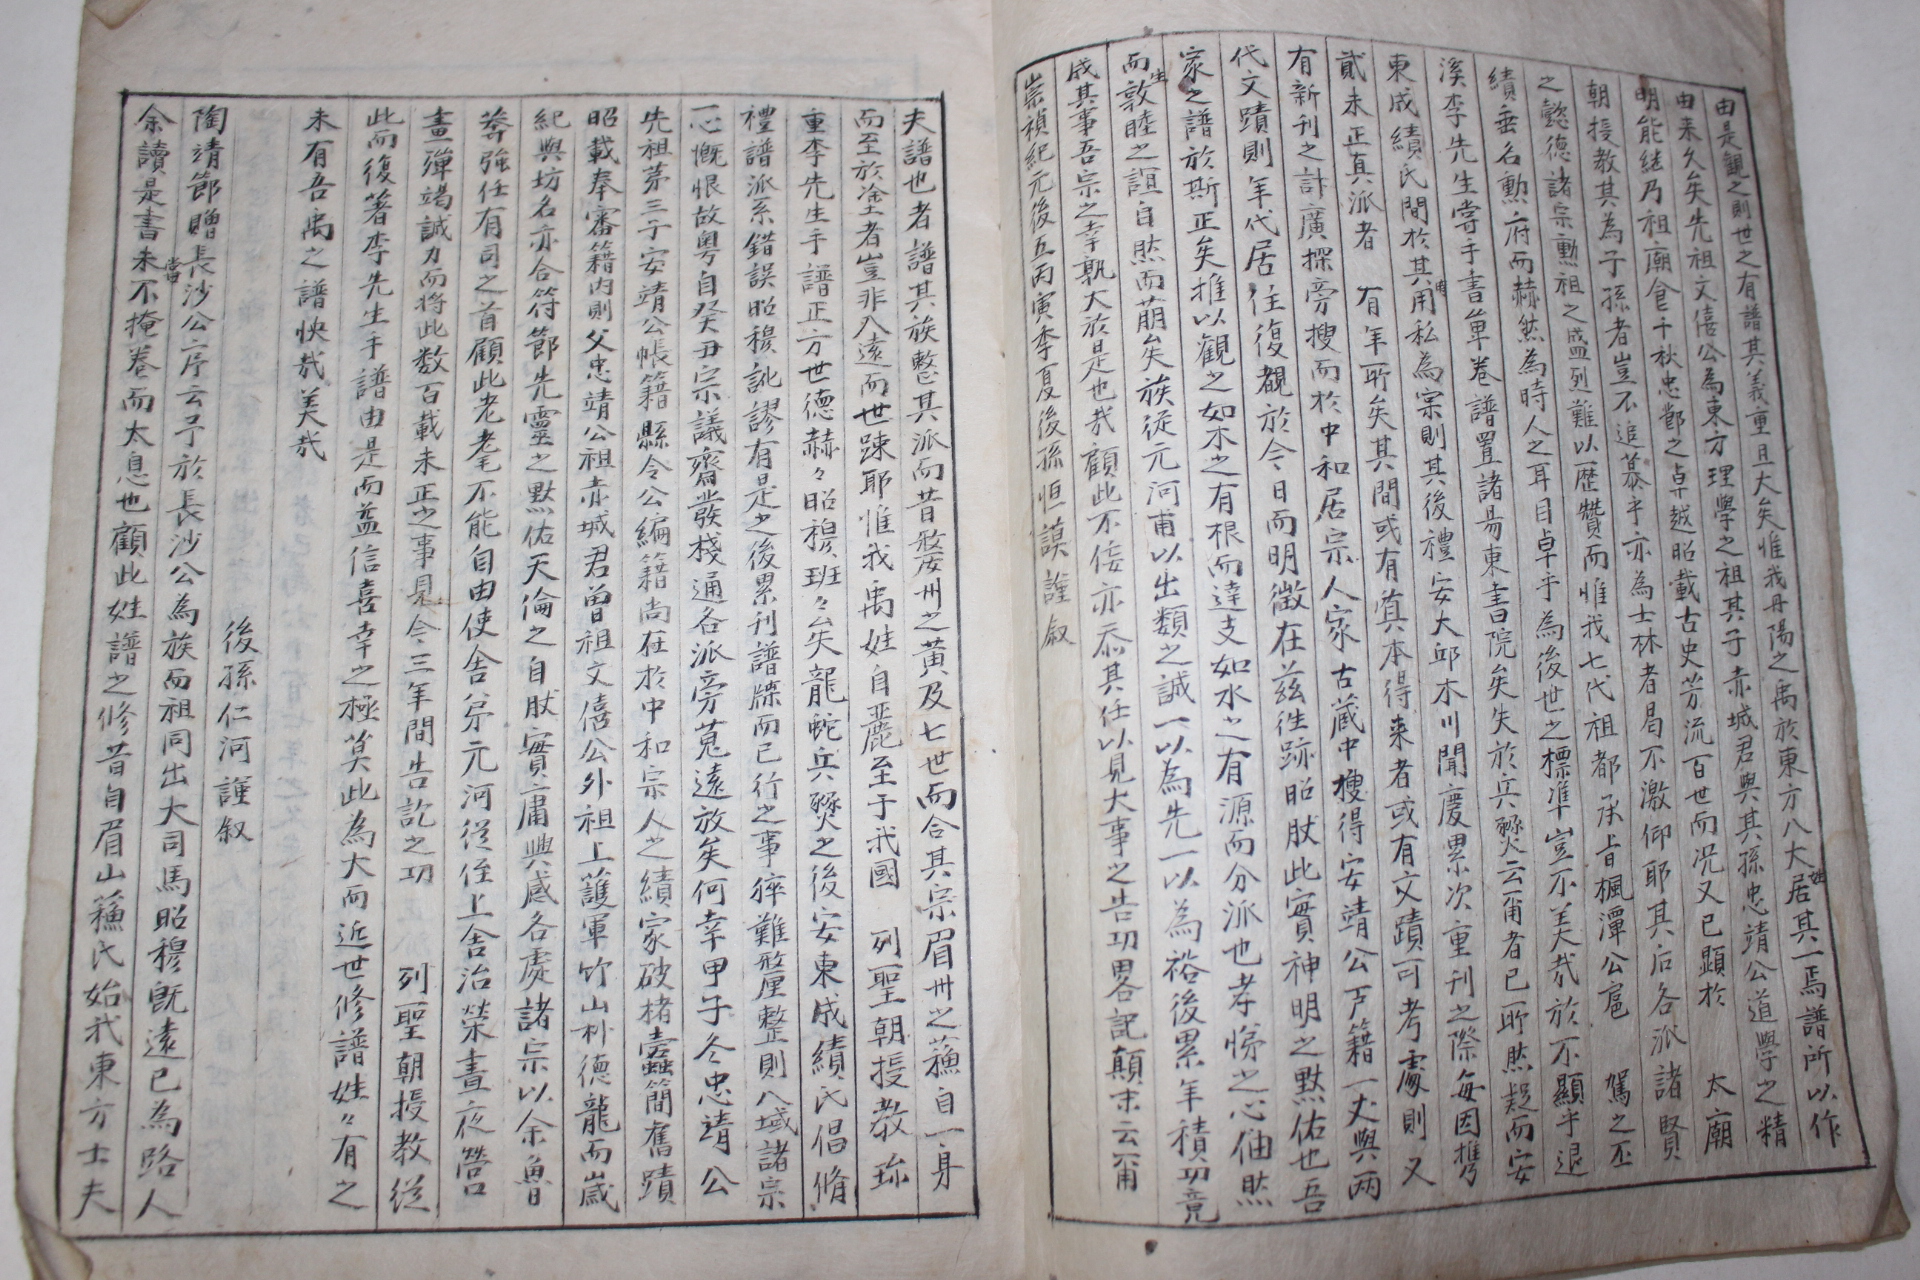 由是觀之則世之有譜其義重且大矣惟我丹陽之禹於東方八大姓居其一焉譜所以作
由來久矣先祖文僖公為東方理學之祖其子赤城君與其孫忠靖公道學之精
明能继乃祖廟食千秋忠鄭之卓越昭載古史芳流百世而况又已顯於 太廟
朝授教其為子孫者豈不追慕乎亦為士林者曷不激仰耶其后各派諸賢
之懿德諸宗勳祖之盛列難以歷贊而惟我七代祖都承旨楓潭公扈 駕之丕
績垂名勳府而赫然為時人之耳目卓乎為後世之標準豈不美哉於不顯乎退
溪李先生嘗手書單卷譜置諸易東書院矣失於兵燹云甭者已所然疑而安
東成績氏間於其時用私為宗則其後禮安大邱木川聞慶累次重刊之際每因携
貳未正真派者 有年所矣其間或有真本得来者或有文蹟可考處則又
有新刊之計廣探旁搜而於中和居宗人家古蔵中搜得安靖公戶籍一丈與兩
代文蹟則年代居住復覩於今日而明徵在茲徃跡昭肰此實神明之默佑也吾
家之譜於斯正矣推以觀之如木之有根而達支如水之有源而分派也孝悌之心油然
而生敦睦之誼自然而萠矣族從元河甫以出類之誠一以為先一以為裕後累年積功竟
成其事吾宗之幸孰大於是也哉顧此不佞亦忝其任以見大事之告功畧記顛末云甭
崇禎紀元後五丙寅季夏後孫恒謨謹叙
夫譜也者譜其族整其派而昔嶅州之黃及七世而合其宗眉州之蘓自一身
而至於塗者豈非入遠而世踈耶惟我禹姓自麗至于我國 列聖朝授教珎
重李先生手譜正方世德赫々昭穆班々矣龍蛇兵燹之後安東成績氏倡脩
禮譜派系錯誤昭穆訛謬有是之後累刊譜牒而已行之事猝難整厘整則八域諸宗
心慨恨故粤自癸丑宗議齋發棧通各派旁蒐遠放矣何幸甲子冬忠靖公
先祖苐三子安靖公帳籍縣令公編籍尚在於中和宗人之績家破楮蠹簡舊蹟
昭載奉審籍內則父忠靖公祖赤城君曾祖文僖公外祖上護軍竹山朴德龍而歲
紀與坊名亦合符節先靈之默佑天倫之自肰實庸興感各處諸宗以余魯
莾強任有司之首顧此老耄不能自由使舍弟元河從侄上舍治榮晝夜營
畫彈竭誠力而將此数百載未正之事見今三年間告訖之功 列聖朝授教從
此而復著李先生手譜由是而益信喜幸之極莫此為大而近世修譜姓々有之
未有吾禹之譜快哉美哉
後孫仁河謹叙
陶靖節贈長沙公序云予於長沙公為族而祖同出大司馬昭穆既遠已為路人
余讀是書未嘗不掩卷而太息也顧此姓譜之修昔自眉山蘓氏始我東方士夫